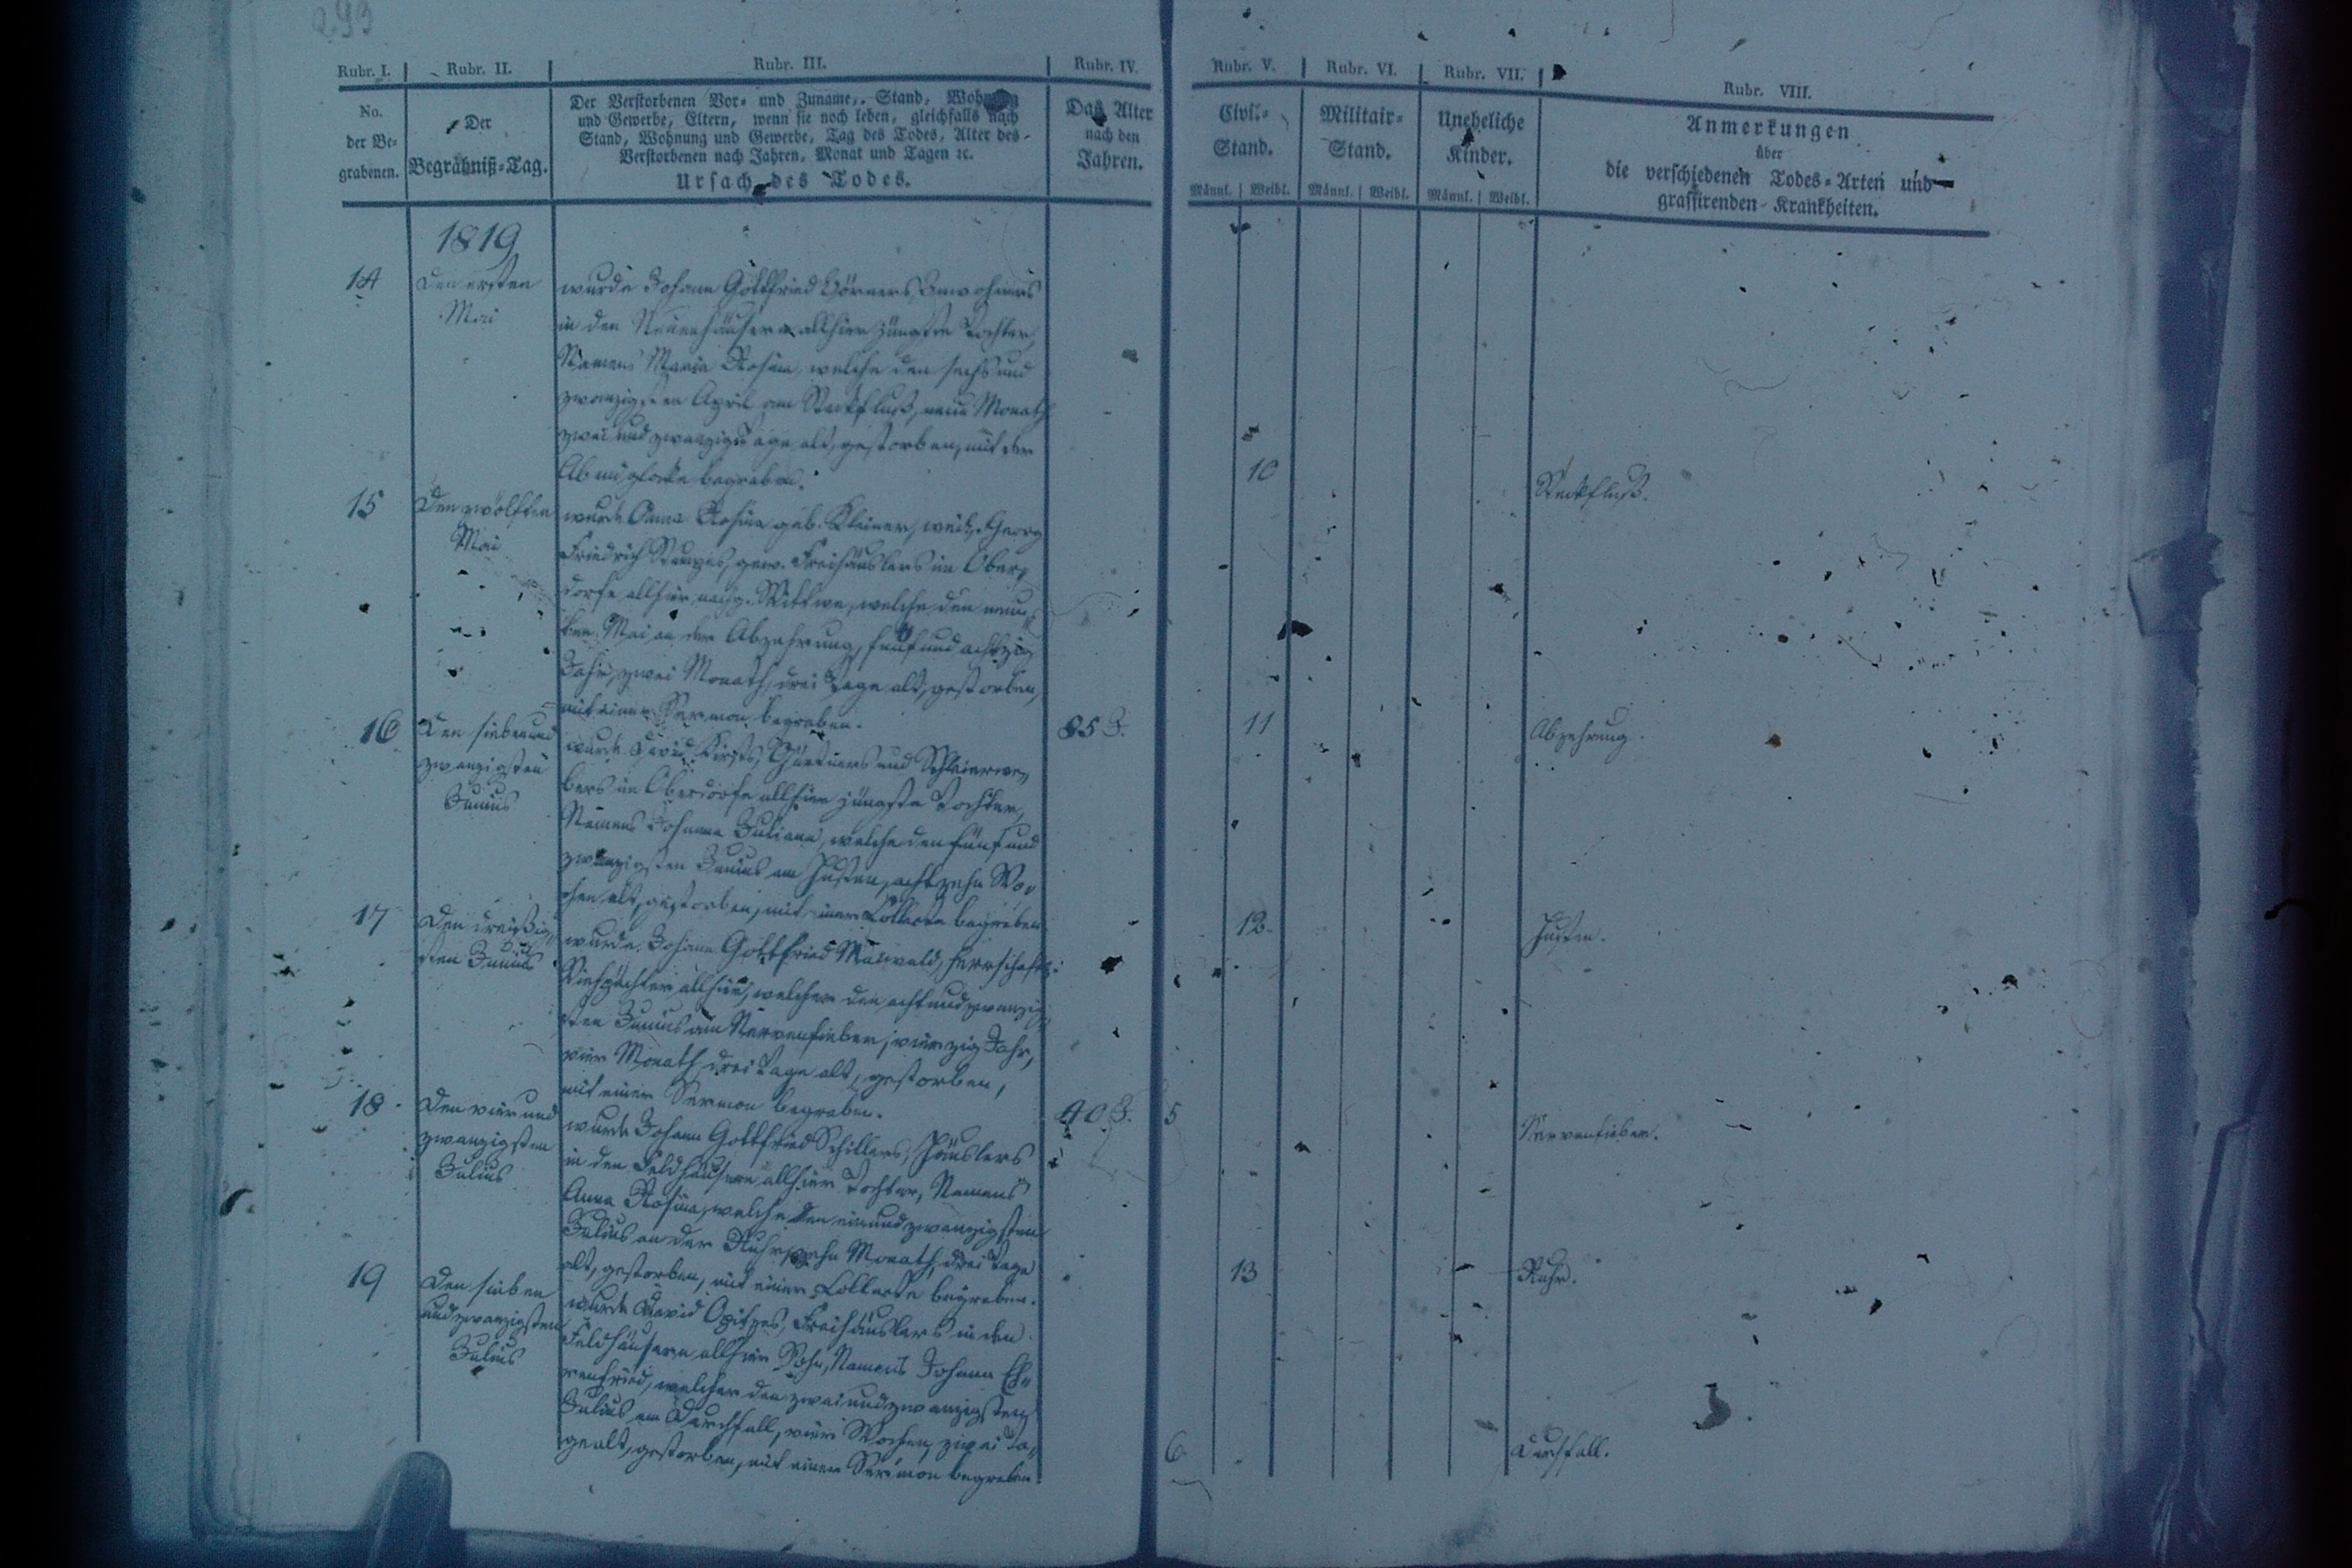 293
Rubr. I. Rubr. II. Rubr. III. Rubr. IV. Rubr. V. Rubr. VI. Rubr. VII. Rubr. VIII.
No. der Be- grabenen.
Der Begräbniß-Tag.
Der Verstorbenen Vor- und Zuname, Stand, Wohnung
und Gewerbe, Eltern, wenn sie noch leben, gleichfalls nach
Stand, Wohnung und Gewerbe, Tag des Todes, Alter des
Verstorbenen nach Jahren, Monat und Tagen ꝛc.
Ursach des Todes.
Das Alter
nach den
Jahren.
Civil-
Stand.
Männl. Weibl.
Militair-
Stand.
Männl. Weibl.
Uneheliche
Kinder.
Männl. Weibl.
Anmerkungen
über
die verschiedenen Todes-Arten und
grassirenden Krankheiten.
1819
14
Den ersten
Mai
wurde Johann Gottfried Hörners, Inwohners
in den Neuenhäusern allhier jüngste Tochter,
Namens Maria Rosina, welche den sechs und
zwanzigsten April am Steckfluß, neun Monath
zwei und zwanzig Tage alt, gestorben, mit der
begraben.
10
Steckfluß.
15
Den zwölften
Mai
wurde Anna Rosina geb. Kleiner, weil. Georg
Friedrich gew. Freihäuslers im Ober-
dorfe allhier nachg. Wittwe, welche den neun-
ten Mai an der Abzehrung, fünf und achtzig
Jahr, zwei Monath, drei Tage alt, gestorben,
mit einem Sermon begraben.
85 J.
11
Abzehrung.
16
Den sieben und
zwanzigsten
Junius
wurde David Gärtners und Schleierwe-
bers im Oberdorfe allhier jüngste Tochter,
Namens Johanne Juliane, welche den fünf und
zwanzigsten Junius am Husten, achtzehn Wo-
chen alt, gestorben, mit einer Collecte begraben
12
Husten.
17
Den dreißig-
sten Junius
wurde Johann Gottfried Maiwald, herrschaftl.
Viehpächter allhier, welcher den acht und zwanzig-
sten Junius am Nervenfieber, vierzig Jahr,
vier Monath drei Tage alt, gestorben,
mit einem Sermon begraben.
40 J.
5
Nervenfieber.
18
Den vier und
zwanzigsten
Julius
wurde Johann Gottfried Schillers, Häuslers
in den Feldhäusern allhier Tochter, Namens
Anna Rosina, welche den ein und zwanzigsten
Julius an der Ruhr, zehn Monath, drei Tage
alt, gestorben, mit einer Collecte begraben.
13
Ruhr.
19
Den sieben
und zwanzigsten
Julius
wurde David Opitzes, Freihäuslers in den
Feldhäusern allhier Sohn, Namens Johann Eh-
renfried, welcher den zwei und zwanzigsten
Julius am Durchfall, vier Wochen, zwei Ta-
ge alt, gestorben, mit einem Sermon begraben
6
Durchfall.